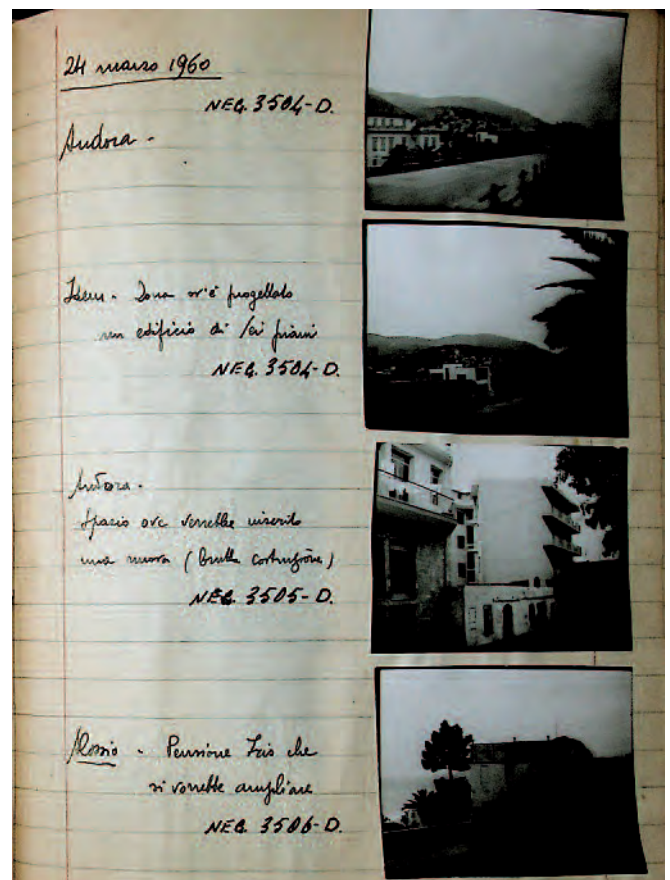 24 marzo 1960
NEG. 3504-D.
Andora -
Idem - Zona ov'è progettato
un edificio di sei piani
NEG. 3504-D.
Andora -
Spazio ove verrebbe inserito
una nuova (brutta costruzione)
NEG. 3505-D.
Alassio - Pensione Iris che
si vorrebbe ampliare
NEG. 3506-D.